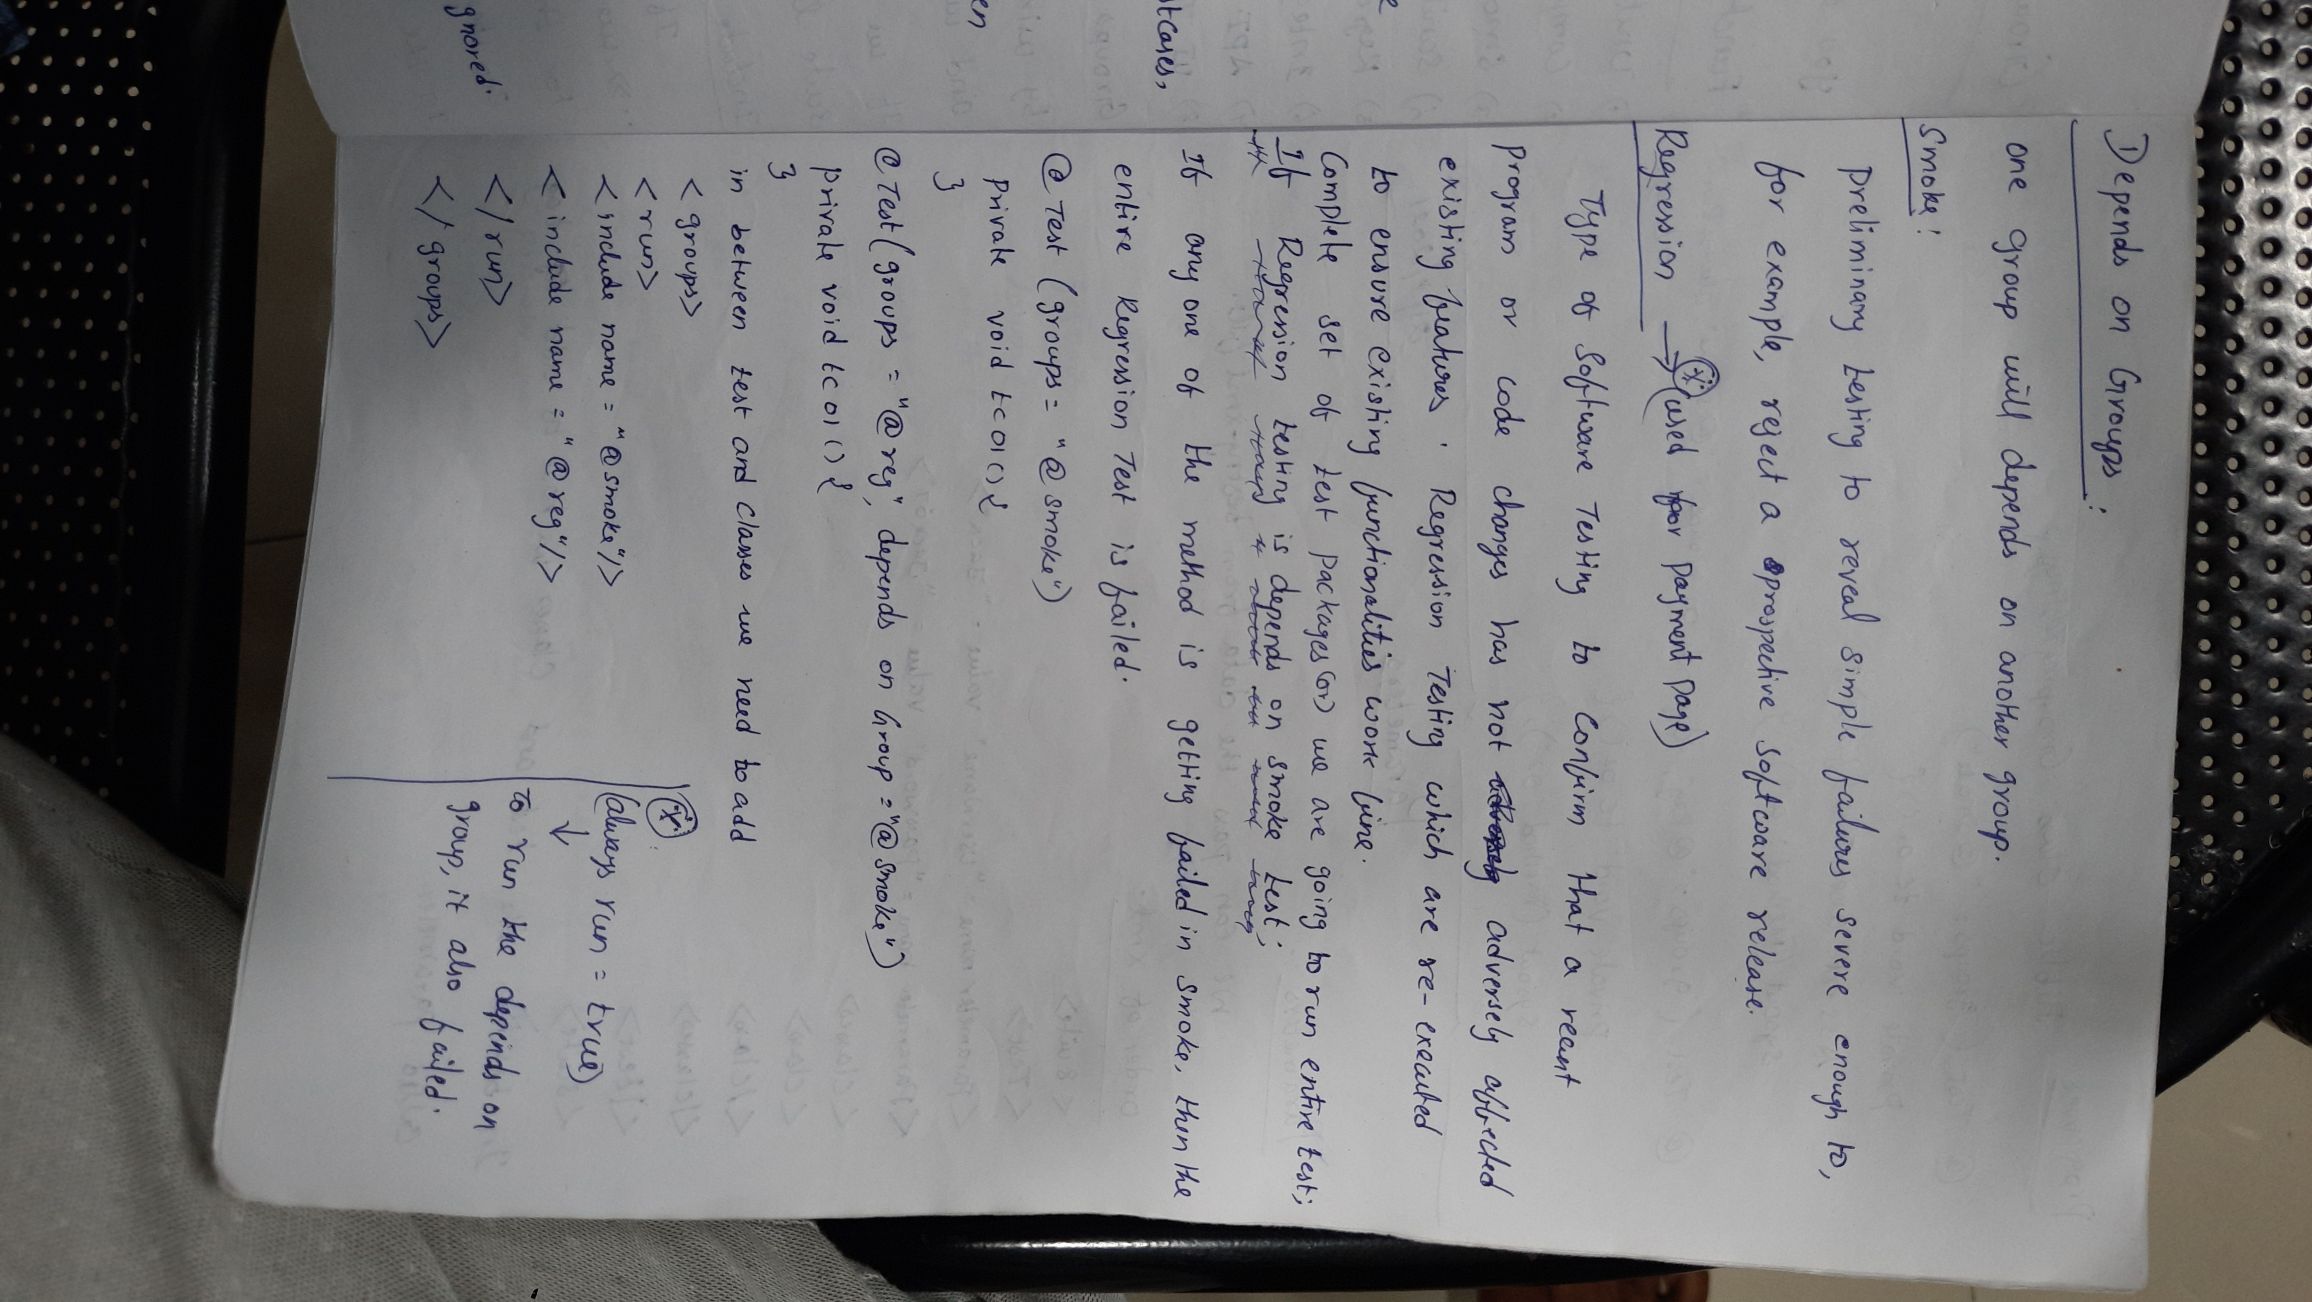 1) Depends on Groups:
one group will depends on another group.
Smoke:
Preliminary testing to reveal simple failures severe enough to,
for example, reject a prospective software release.
Regression → (used for payment page)
Type of Software Testing to Confirm that a recent
program or code changes has not adversely affected
existing features. Regression Testing which are re-executed
to ensure existing functionalities work fine.
Complete set of test packages (or) we are going to run entire test;
If Regression testing is depends on smoke test;
If any one of the method is getting failed in smoke, then the
entire Regression Test is failed.
@ Test (groups = "@smoke")
private void tc01(){
}
@Test(groups = "@reg", depends on Group = "@smoke")
private void tc01(){
}
in between test and classes we need to add
<groups>
<run>
<include name = "@smoke"/>
<include name = "@reg"/>
</run>
</groups>
(always run = true)
↓
To run the depends on
group, it also failed.
en
stcases,
gnored.